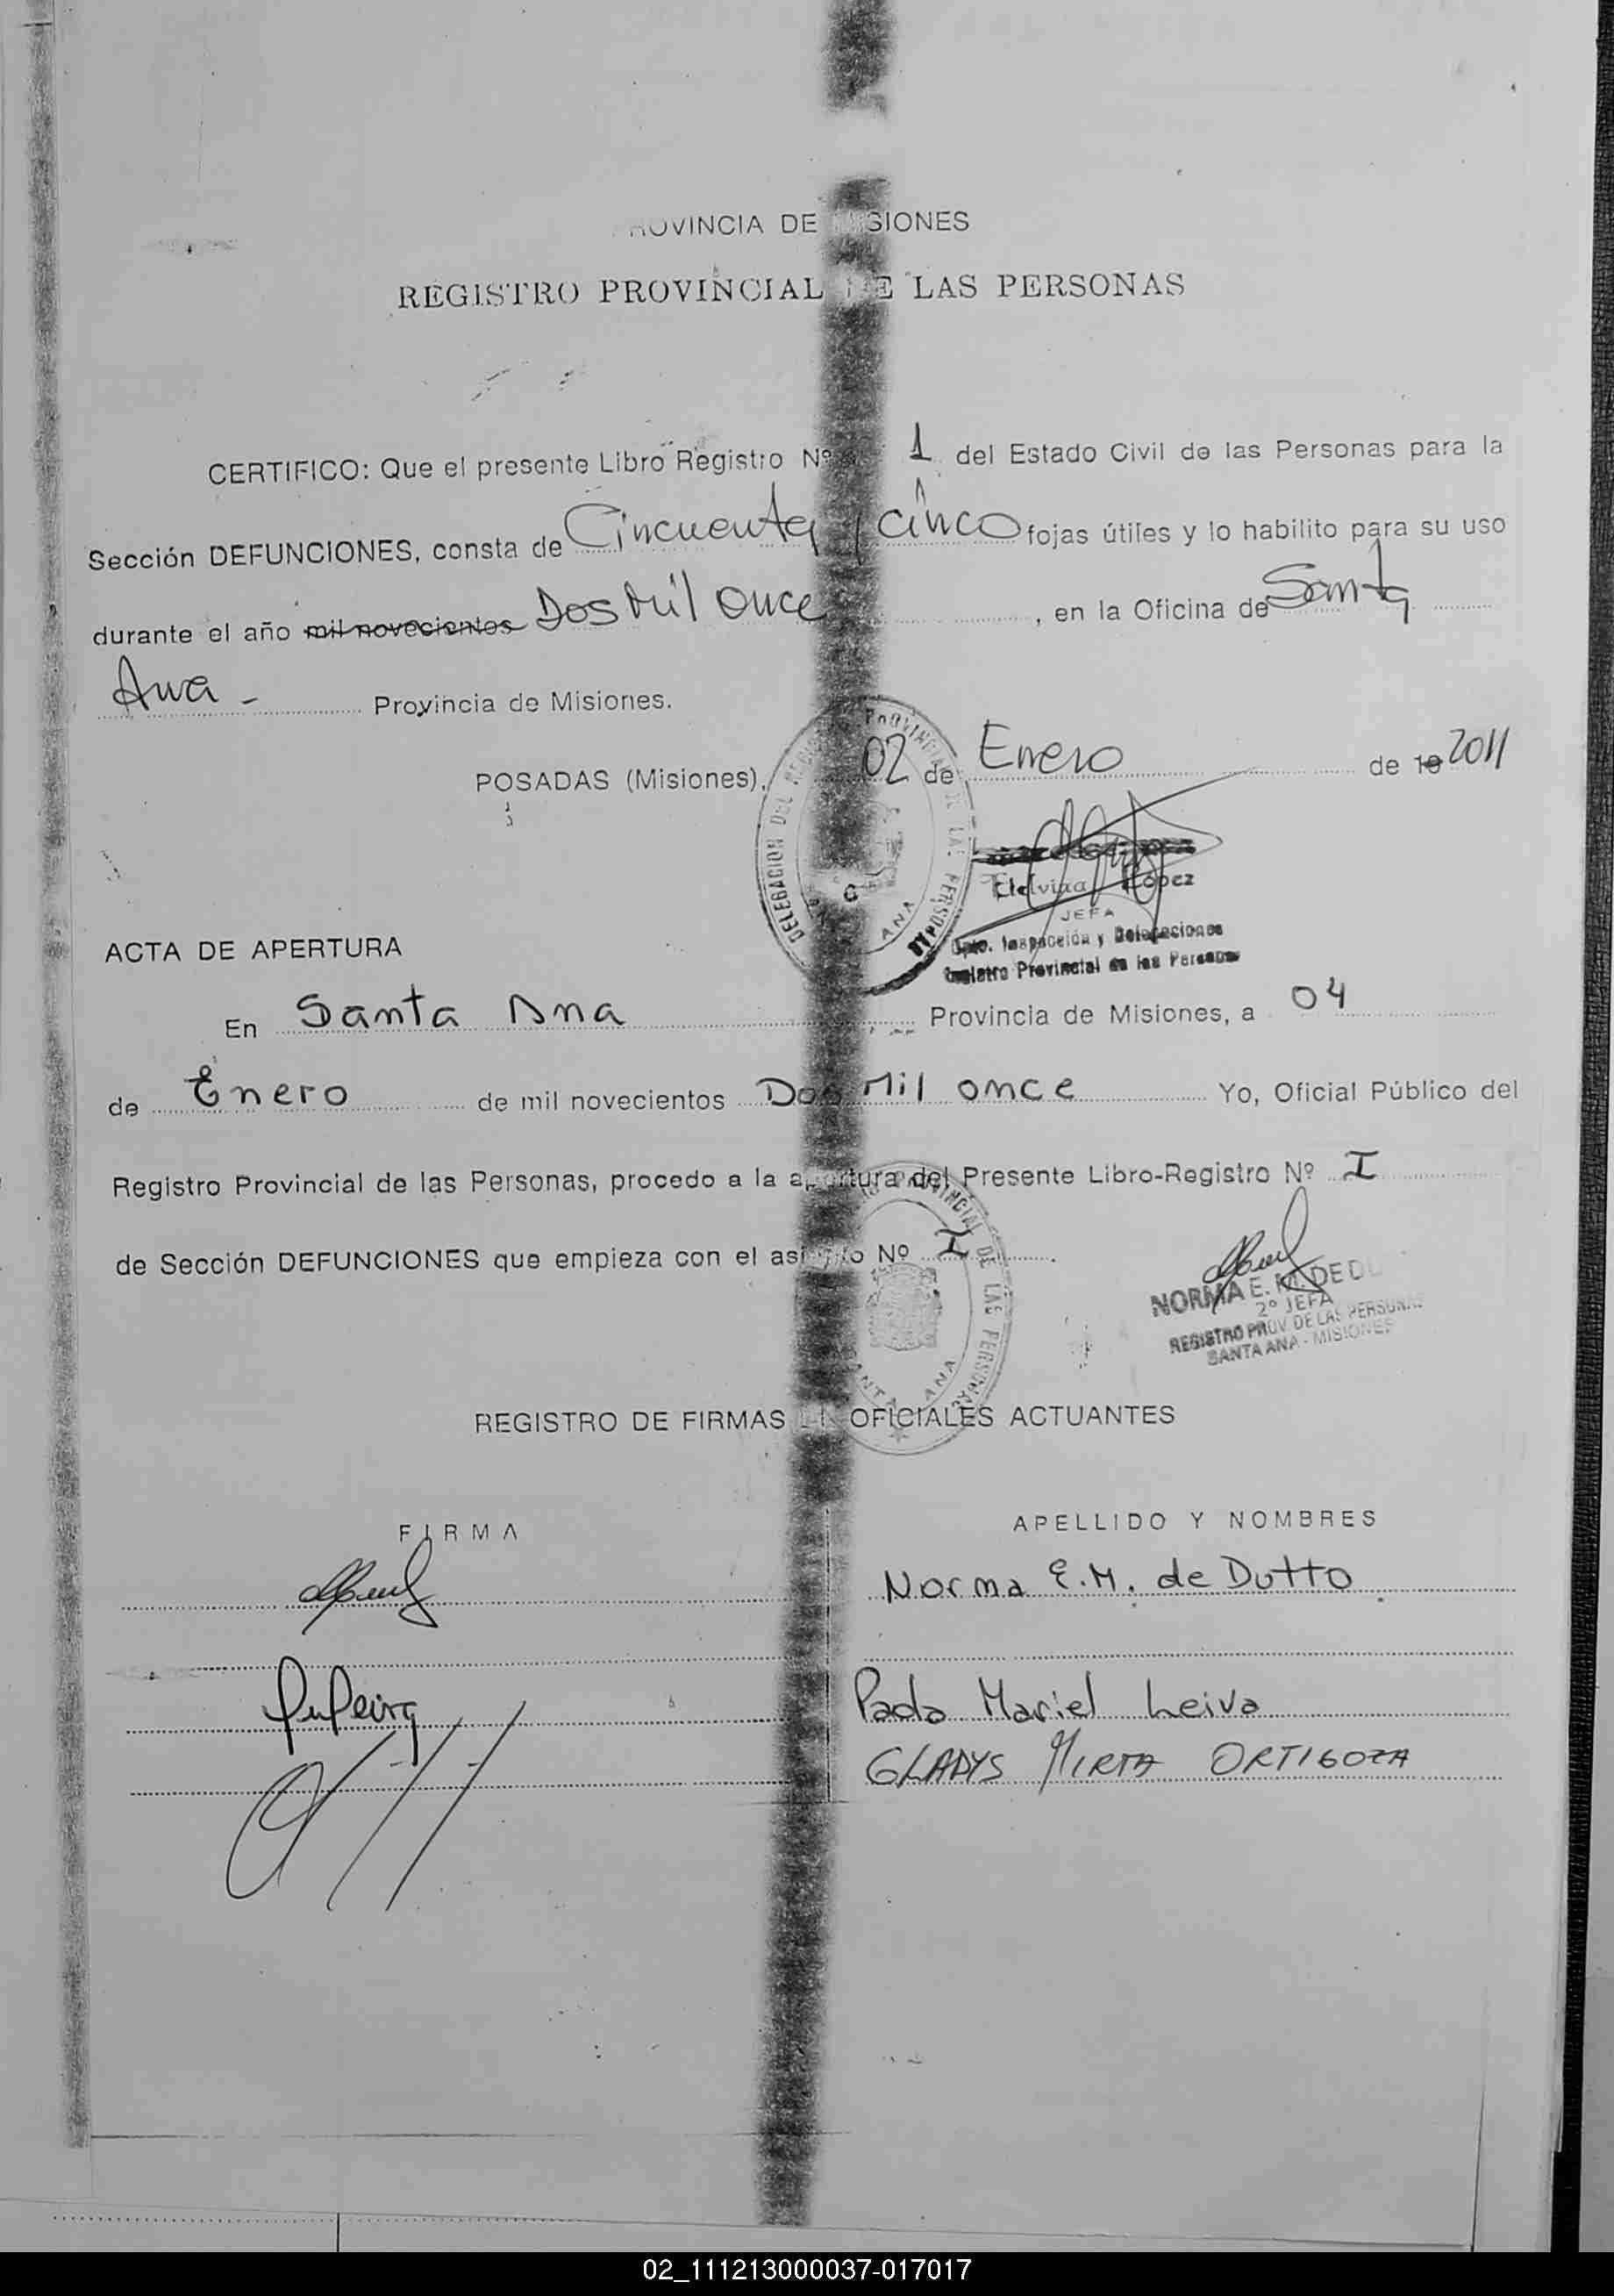 PROVINCIA DE MISIONES
REGISTRO PROVINCIAL DE LAS PERSONAS
CERTIFICO: Que el presente Libro Registro Nº 1 del Estado Civil de las Personas para la
Sección DEFUNCIONES, consta de Cincuenta y cinco fojas útiles y lo habilito para su uso
durante el año mil novecientos Dos Mil Once, en la Oficina de Santa
Ana - Provincia de Misiones.
POSADAS (Misiones), 02 de Enero de 19 2011
DELEGACION DEL REGISTRO PROVINCIAL DE LAS PERSONAS
ANA
Etelvina López
JEFA
Dpto. Inspección y Delegaciones
Registro Provincial de las Personas
ACTA DE APERTURA
En Santa Ana Provincia de Misiones, a 04
de Enero de mil novecientos Dos Mil once Yo, Oficial Público del
Registro Provincial de las Personas, procedo a la apertura del Presente Libro-Registro Nº I
de Sección DEFUNCIONES que empieza con el asiento Nº I.
PROVINCIAL DE LAS PERSONAS
SANTA ANA
NORMA E. M. DE DU
2º JEFA
REGISTRO PROV. DE LAS PERSONAS
SANTA ANA - MISIONES
REGISTRO DE FIRMAS EN OFICIALES ACTUANTES
FIRMA APELLIDO Y NOMBRES
Norma E.M. de Dutto
Paola Mariel Leiva
GLADYS MIRTA ORTIGOZA
02_111213000037-017017